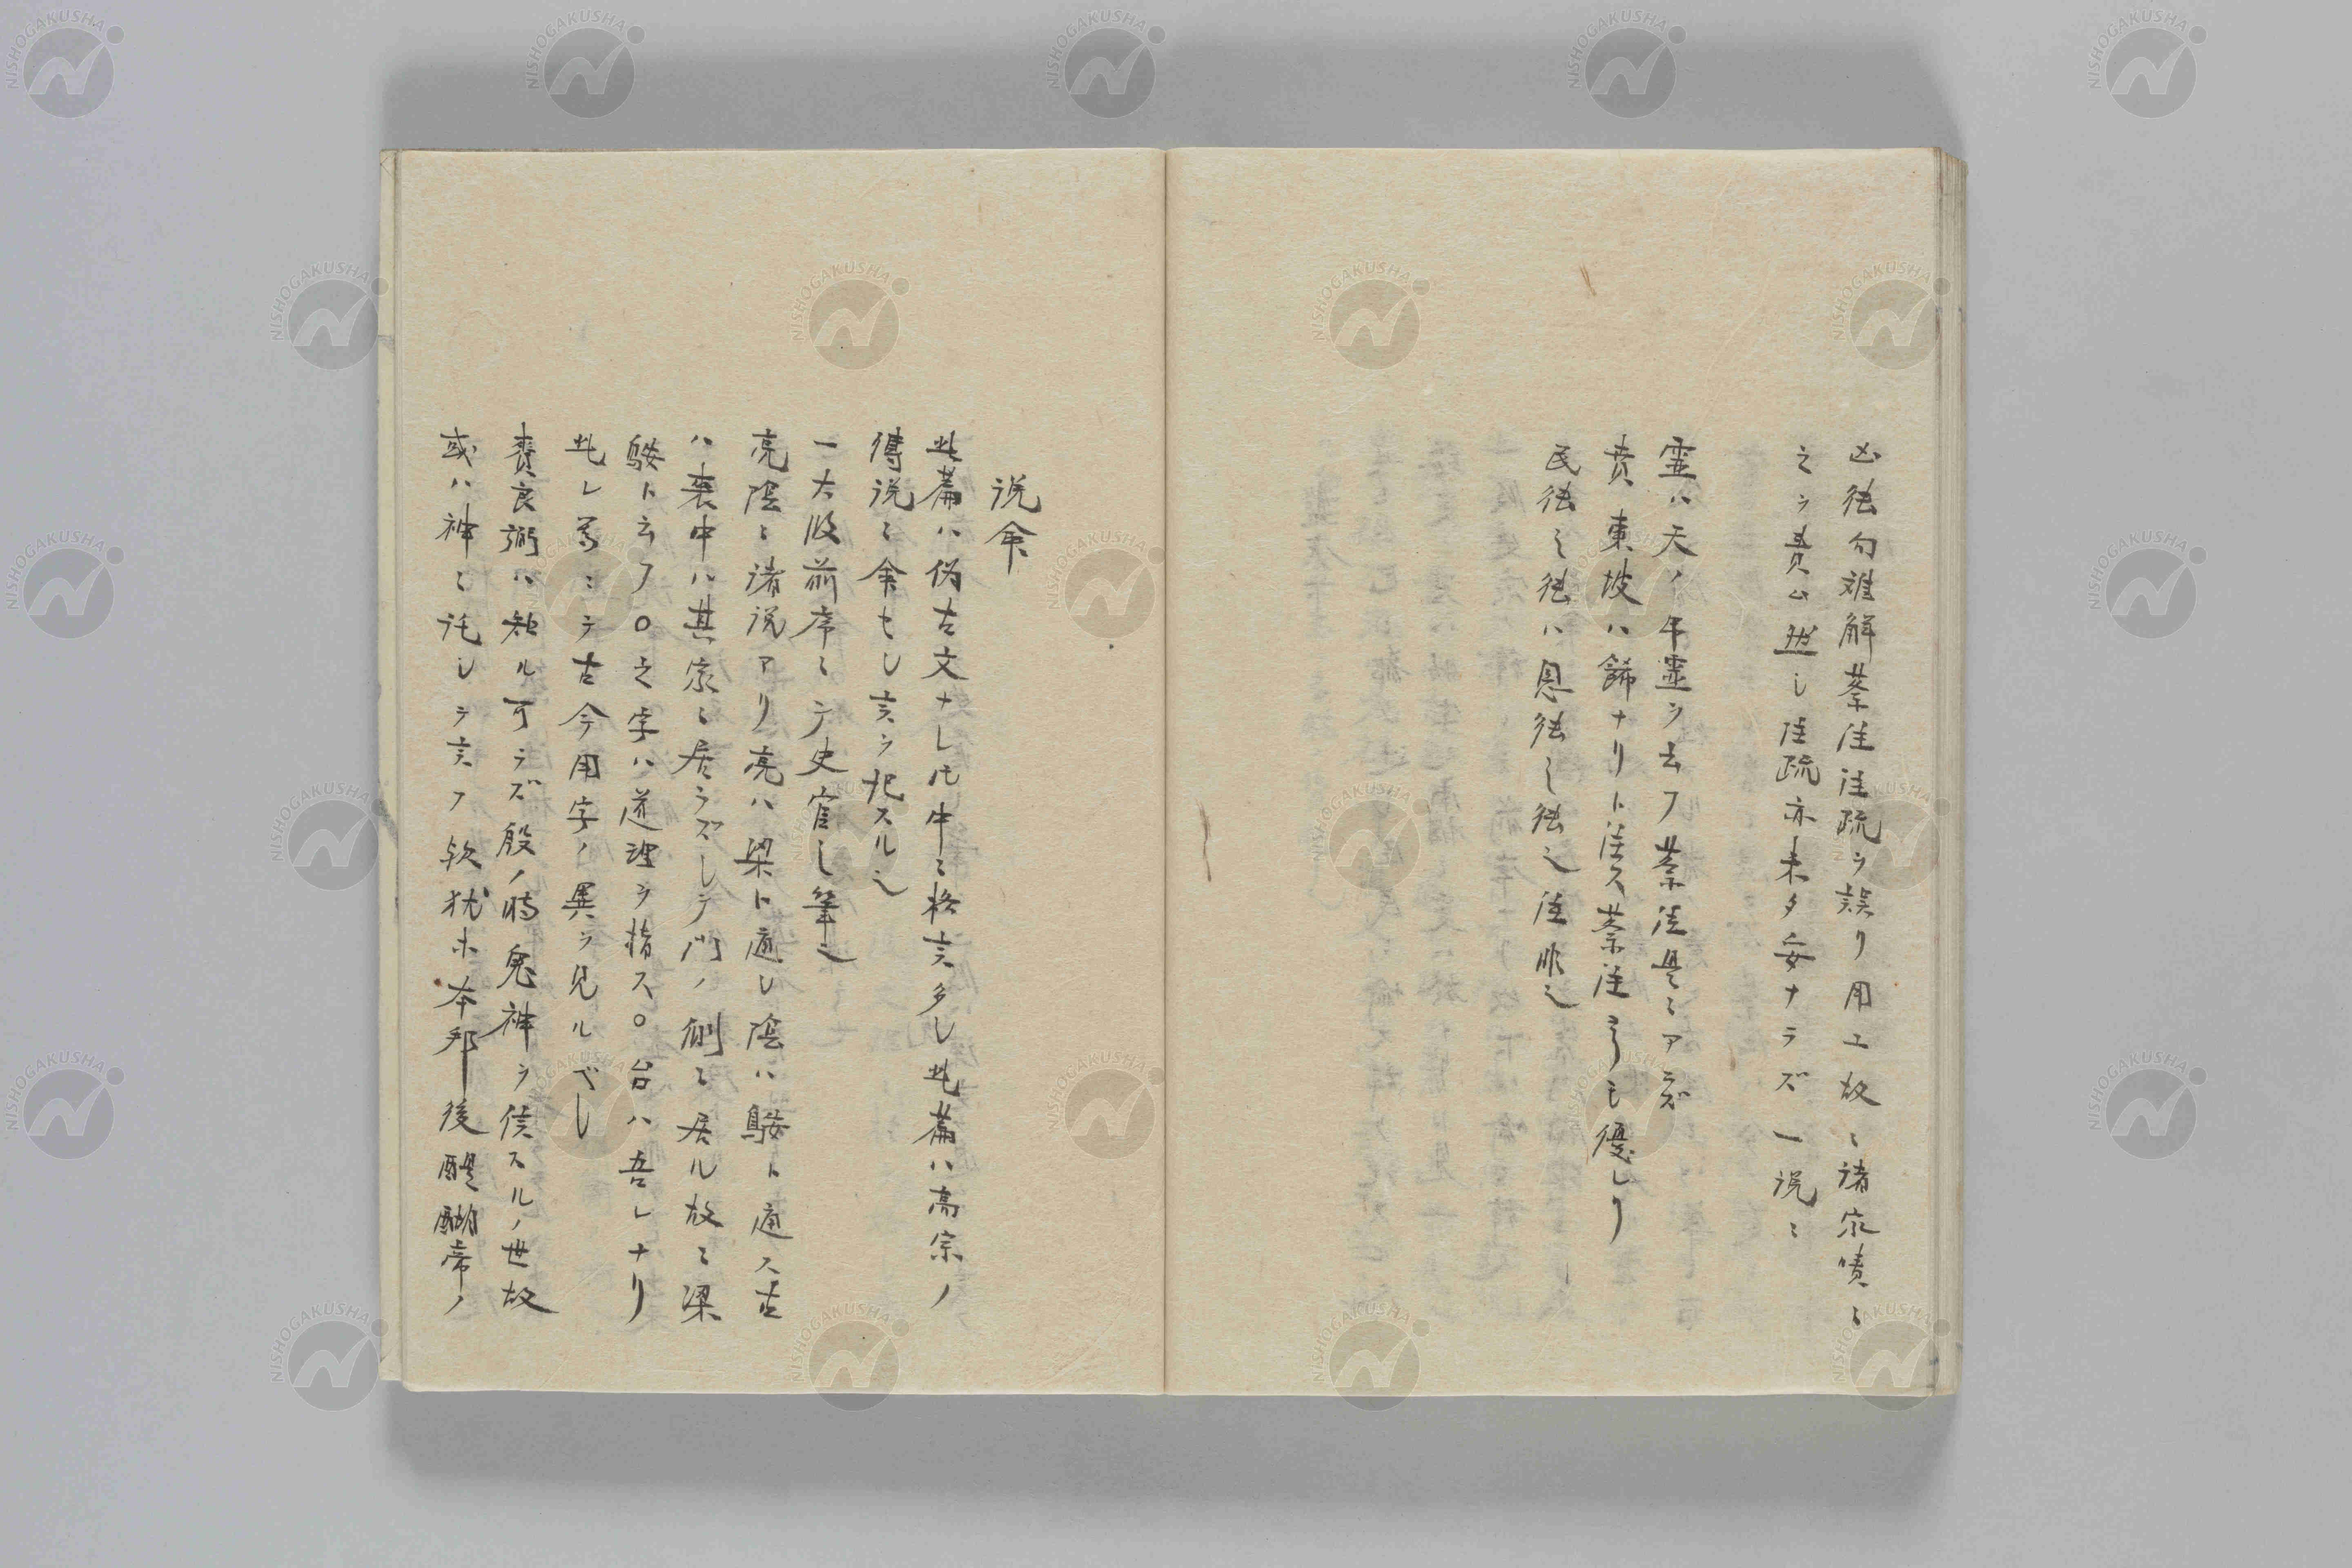 凶德句難解蔡注注疏ヲ誤リ用エ故ニ諸家嘖ニ
之ヲ責ム然レ注疏亦未タ妥ナラズ一説ニ
霊ハ天ノ年霊ヲ云フ蔡注是ニアラズ
賁東坡ハ餙ナリト注ス蔡注ヨリモ優レリ
民德ノ德ハ恩德ノ德也注非也
説命
此篇ハ偽古文ナレ𪜈中ニ格言多シ此篇ハ高宗ノ
傅説ニ命セし言ヲ記スル也
一大段前序ニテ史官ノ筆也
亮陰ニ諸説アリ亮ハ梁ト通し陰ハ䳺ト通ス古
ハ喪中ハ其家ニ居ラズしテ門ノ側ニ居ル故ニ梁
䳺ト云フ○之字ハ道理ヲ指ス○台ハ吾レナリ
此レ等ニテ古今用字ノ異ヲ見ルベし
賚良弼ハ知ル可ラズ殷ノ時鬼神ヲ信スルノ世故
或ハ神ニ託しテ言フ欤猶ホ本邦後醍醐帝ノ
NISHOGAKUSHA